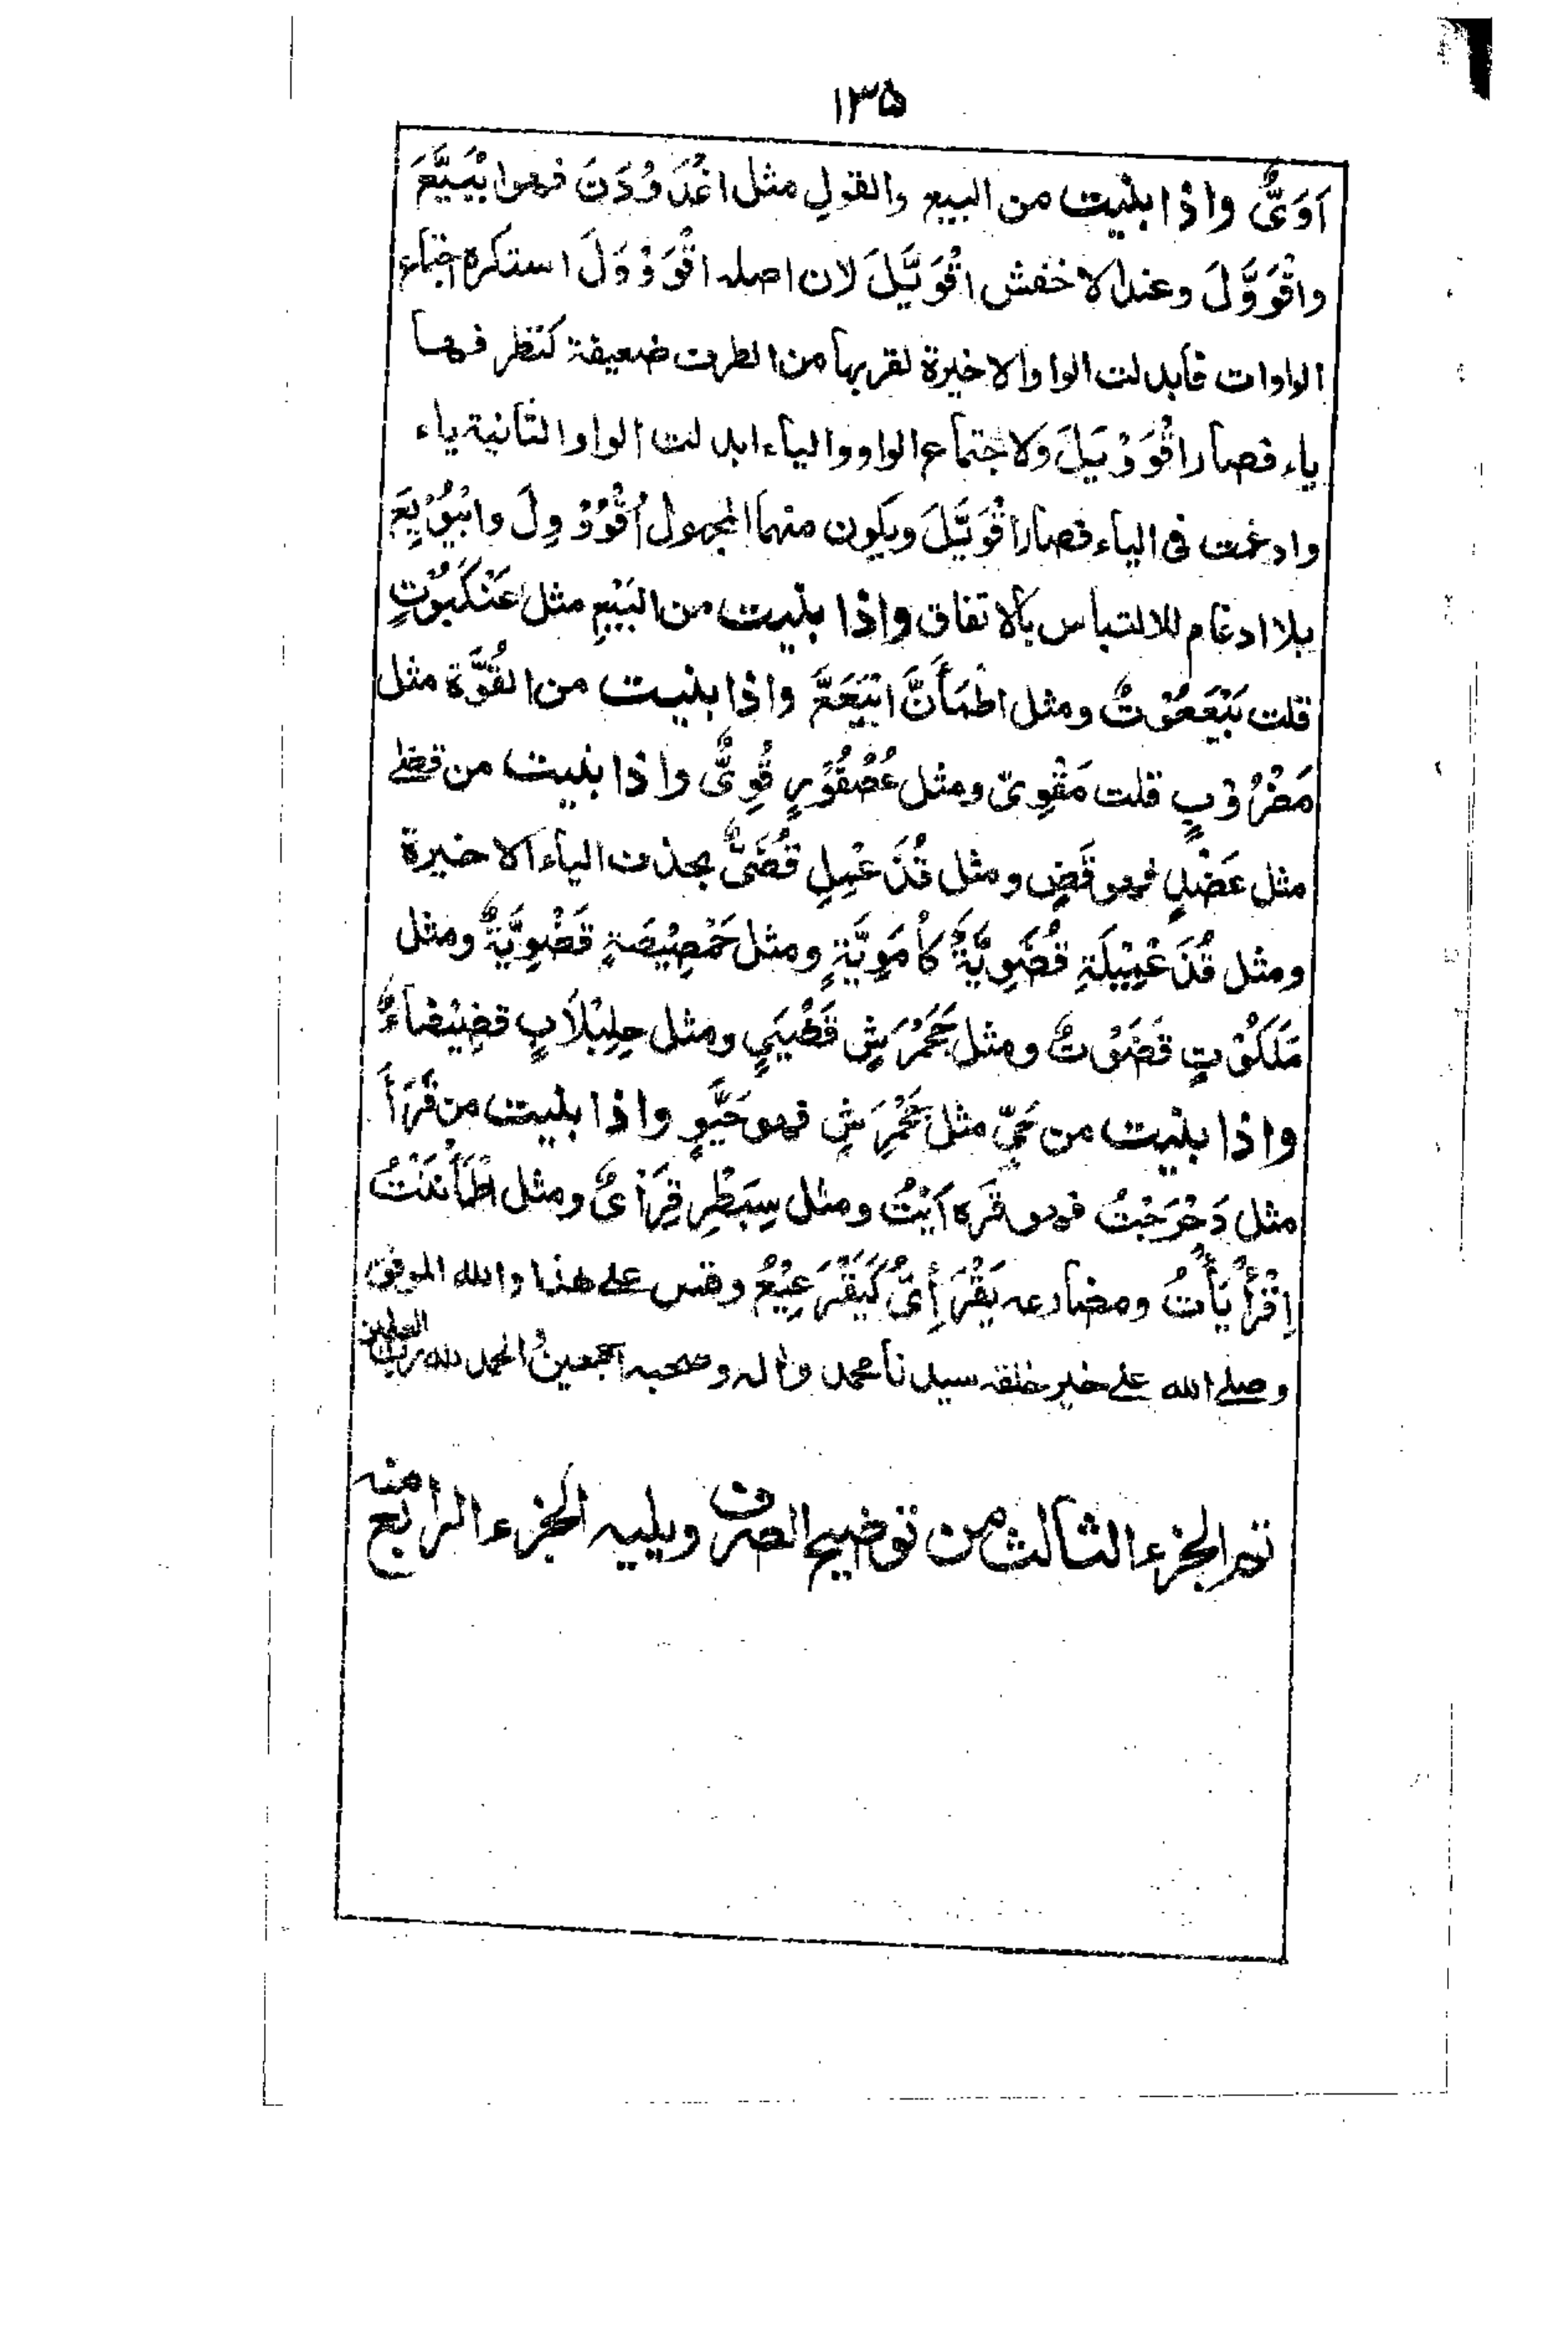 ١٣٥
اَوَىٌّ واذا بنيت من البيع والقول مثل اغْدَوْدَنَ فهوابْيَيَّعَ
واقْوَوَّلَ وعند الاخفش اقْوَيَّلَ لان اصله اقْوَوْوَلَ استكره اجتماع
الواوات فابدلت الواو الاخيرة لقربها من الطرف ضعيفة كنظر فيها
ياء فصار اقْوَوْيَلَ ولاجتماع الواو والياء ابدلت الواو الثانية ياء
وادغمت فى الياء فصار اقْوَيَّلَ ويكون منهما المجهول اُقْوُوْوِلَ وابْيُوْيِعَ
بلا ادغام للالتباس بالاتفاق واذا بنيت من البَيْعِ مثل عَنْكَبُوْتٍ
قلت بَيْعَعُوْتٌ ومثل اطْمَأَنَّ ابْيَعَعَّ واذا بنيت من القُوَّة مثل
مَضْرُوْبٍ قلت مَقْوِىّ ومثل عُصْفُوْرٍ قُوِىٌّ واذا بنيت من قضٰى
مثل عَضُدٍ فهو قَضٍ ومثل قُذَعْمِلٍ قُضَىٌّ بحذف الياء الاخيرة
ومثل قُذَعْمِيْلَةٍ قُضَوِيَّةٌ كاُمَوِيَّةٍ ومثل حَمْصِيْصَةٍ قَضَوِيَّةٌ ومثل
مَلَكُوْتٍ قَضَوْتٌ ومثل جَحْمَرِشٍ قَضْيَيٍ ومثل حِلِبْلَابٍ قضِيْضاءٌ
واذا بنيت من حَيَّ مثل جَحْمَرِشٍ فهو حَيَّوٍ واذا بنيت من قَرَأَ
مثل دَحْرَجْتُ فهو قَرَءَايْتُ ومثل سِبَطْرٍ قِرَأْىٌ ومثل اطْمَأْنَنْتُ
اِقْرَأْيَأْتُ ومضارعه يَقْرَأِىُّ كَيَقْرَعِيْعُ وقس على هذا والله الموفق
وصلى الله على خير خلقه سيدنا محمد واله وصحبه اجمعين الحمد لله رب العلمين
تم الجزء الثالث من توضيح الصرف ويليه الجزء الرابع منه